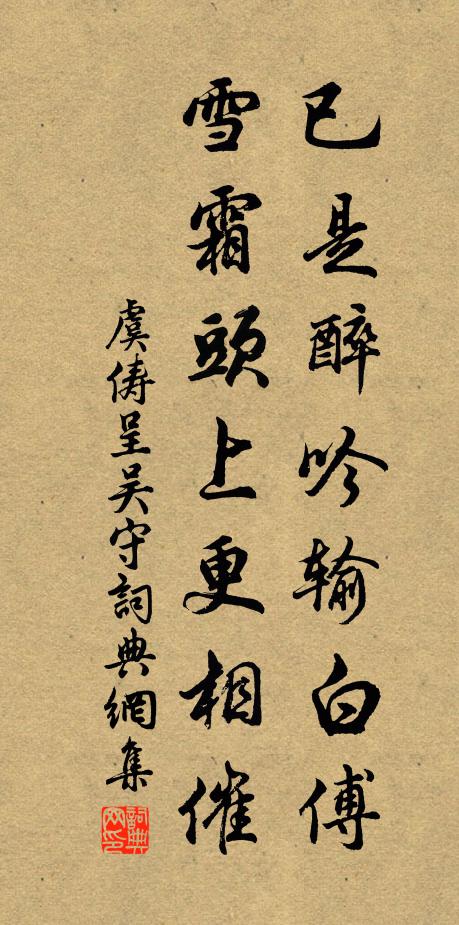 已是醉吟输白傅
雪霜頭上更相催
虞儔呈吴守詞典網集
詞典网印